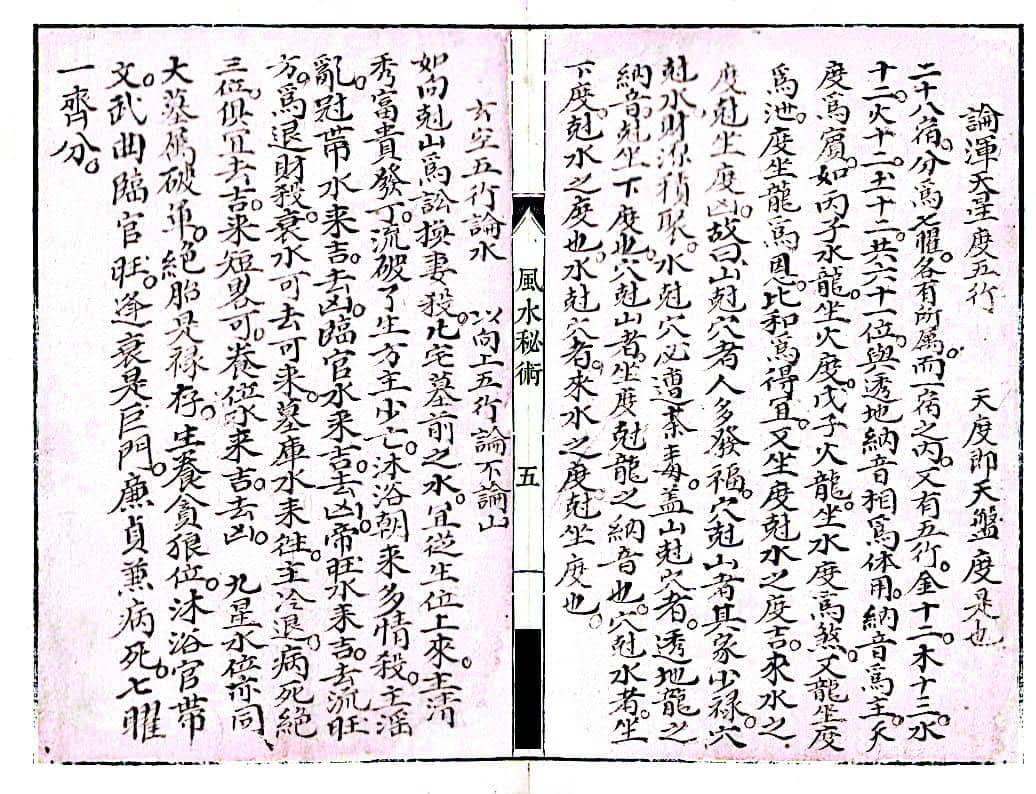 論渾天星度五行　天度即天盤度是也
二十八宿。分爲七曜。各有所屬。而一宿之內。又有五行。金十二。木十三。水
十二。火十二。土十二。共六十一位。與透地納音相爲体用。納音爲主。天
度爲賓。如丙子水龍。坐火度。戊子火龍。坐水度爲煞。又龍坐度
爲泄。度坐龍爲恩。比和爲得宜。又坐度尅水之度吉。來水之
度尅坐度凶。故曰山尅穴者人多發福。穴尅山者其家少祿。穴
尅水。財源積聚。水尅穴必遭荼毒。蓋山尅穴者。透地龍之
納音。尅坐下度也。穴尅山者。坐度尅龍之納音也。穴尅水者。坐
下度。尅水之度也。水尅穴者。來水之度。尅坐度也。
風水秘術
五
玄空五行論水　以向上五行論不論山
如向尅山爲訟換妻殺。凡宅墓前之水。宜從生位上來。主清
秀富貴發丁。流破了生方主少亡。沐浴朝來多情殺。主滛
亂。冠帶水来吉。去凶。臨官水来吉。去凶。帝旺水来吉。去流旺
方。爲退財殺。衰水可去可来。墓庫水来徃。主冷退。病死絕
三位。俱宜去吉。来短畧可。養位水来吉。去凶。　九星水位亦同、
大墓爲破軍。絕胎是祿存。生養貪狼位。沐浴官帶
文。武曲臨官旺。逢衰是巨門。廉貞兼病死。七曜
一齊分。